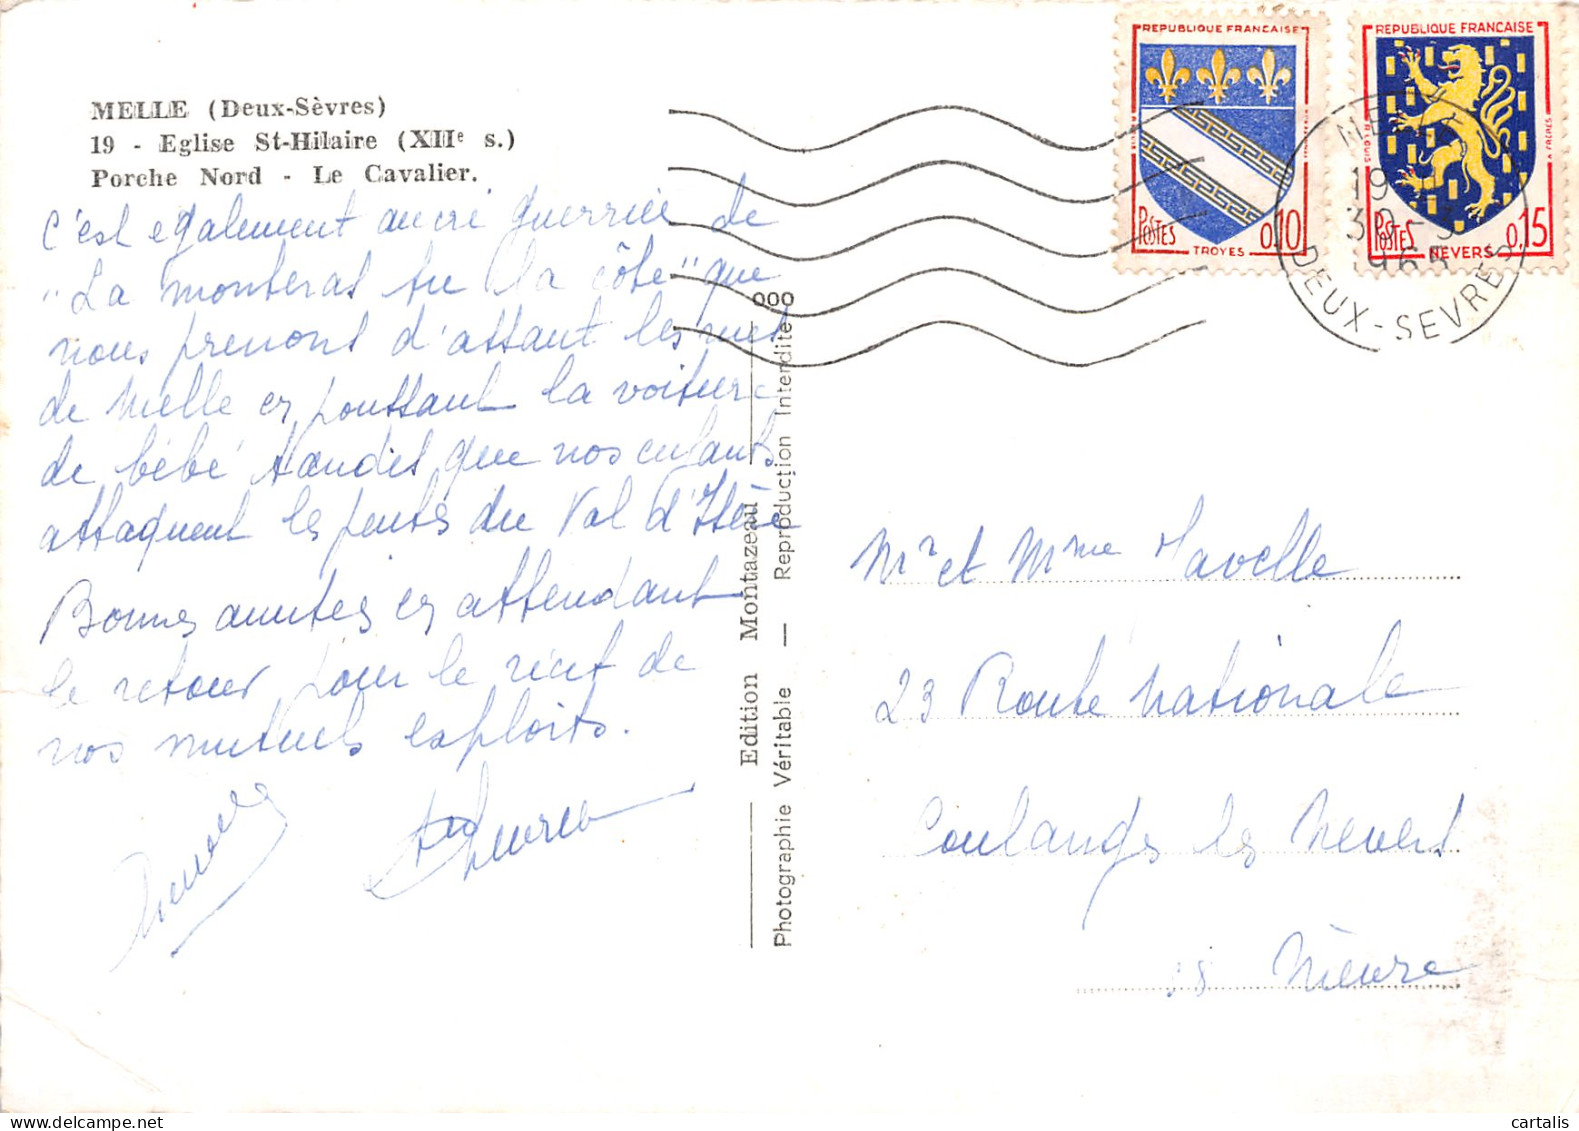 MELLE (Deux-Sèvres)
19 - Eglise St-Hilaire (XIIe s.)
Porche Nord - Le Cavalier.
C'est également au cri guerrier de
"La monteras tu la côte" que
nous prenons d'assaut les rues
de Melle en poussant la voiture
de bébé tandis que nos enfants
attaquent les pentes du Val d'Isère
Bonnes années en attendant
le retour pour le récit de
nos mutuels exploits.
Edition Montazeau
Photographie Véritable — Reproduction Interdite
000
REPUBLIQUE FRANCAISE
POSTES 0,10
TROYES
REPUBLIQUE FRANCAISE
POSTES 0,15
NEVERS
19 H
30-3
1965
DEUX-SEVRES
Mr et Mme Mavelle
23 Route Nationale
Coulanges les Nevers
58 Nièvre
cartalis